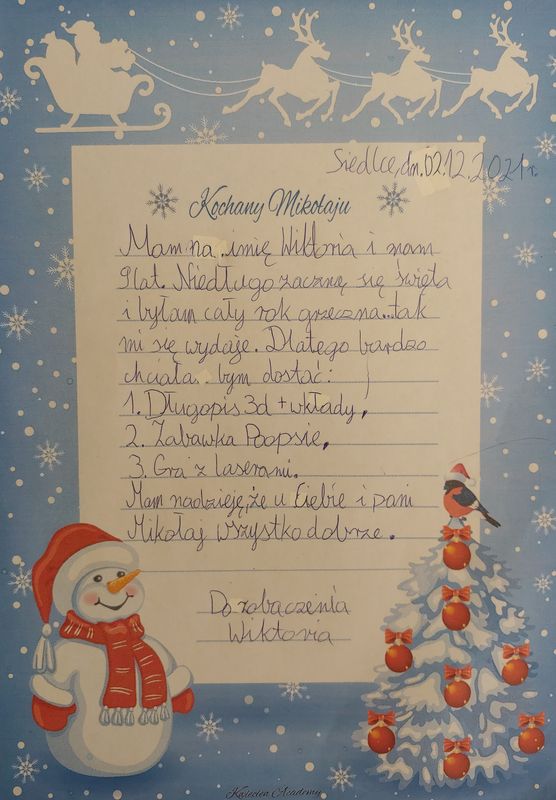 Siedlce, dn. 02.12.2021 r.
Kochany Mikołaju
Mam na imię Wiktoria i mam
9 lat. Niedługo zaczną się święta
i byłam cały rok grzeczna...tak
mi się wydaje. Dlatego bardzo
chciała..bym dostać:
1. Długopis 3d + wkłady,
2. Zabawka Poopsie,
3. Gra z laserami.
Mam nadzieję, że u Ciebie i pani
Mikołaj wszystko dobrze.
Do zobaczenia
Wiktoria
Kwiecień Academy